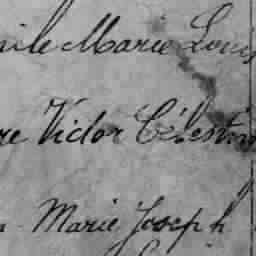 ile Marie Louis
re Victor Célestin
Marie Joseph